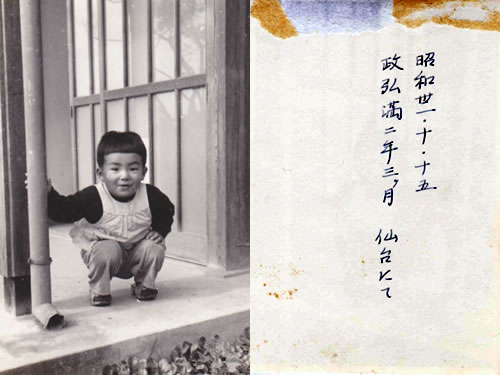 昭和卅一・十・十五
政弘満二年三ヶ月 仙台にて